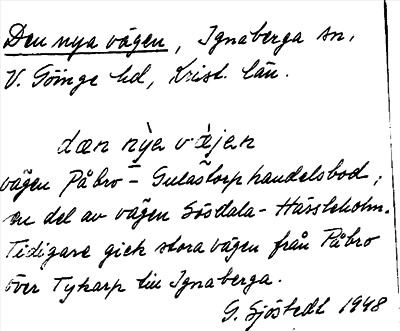 Den nya vägen, Ignaberga sn,
V. Göinge hd, Krist. län.
dæn nỳa vä̀jen
vägen Påbro - Gulastorp handelsbod;
en del av vägen Sösdala - Hässleholm.
Tidigare gick stora vägen från Påbro
över Tykarp till Ignaberga.
G. Sjöstedt 1948